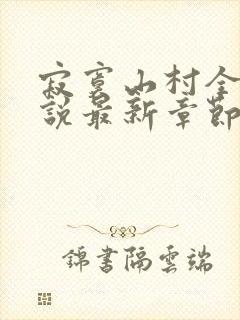 寂寞山村全
說最新章節
錦書隔雲端